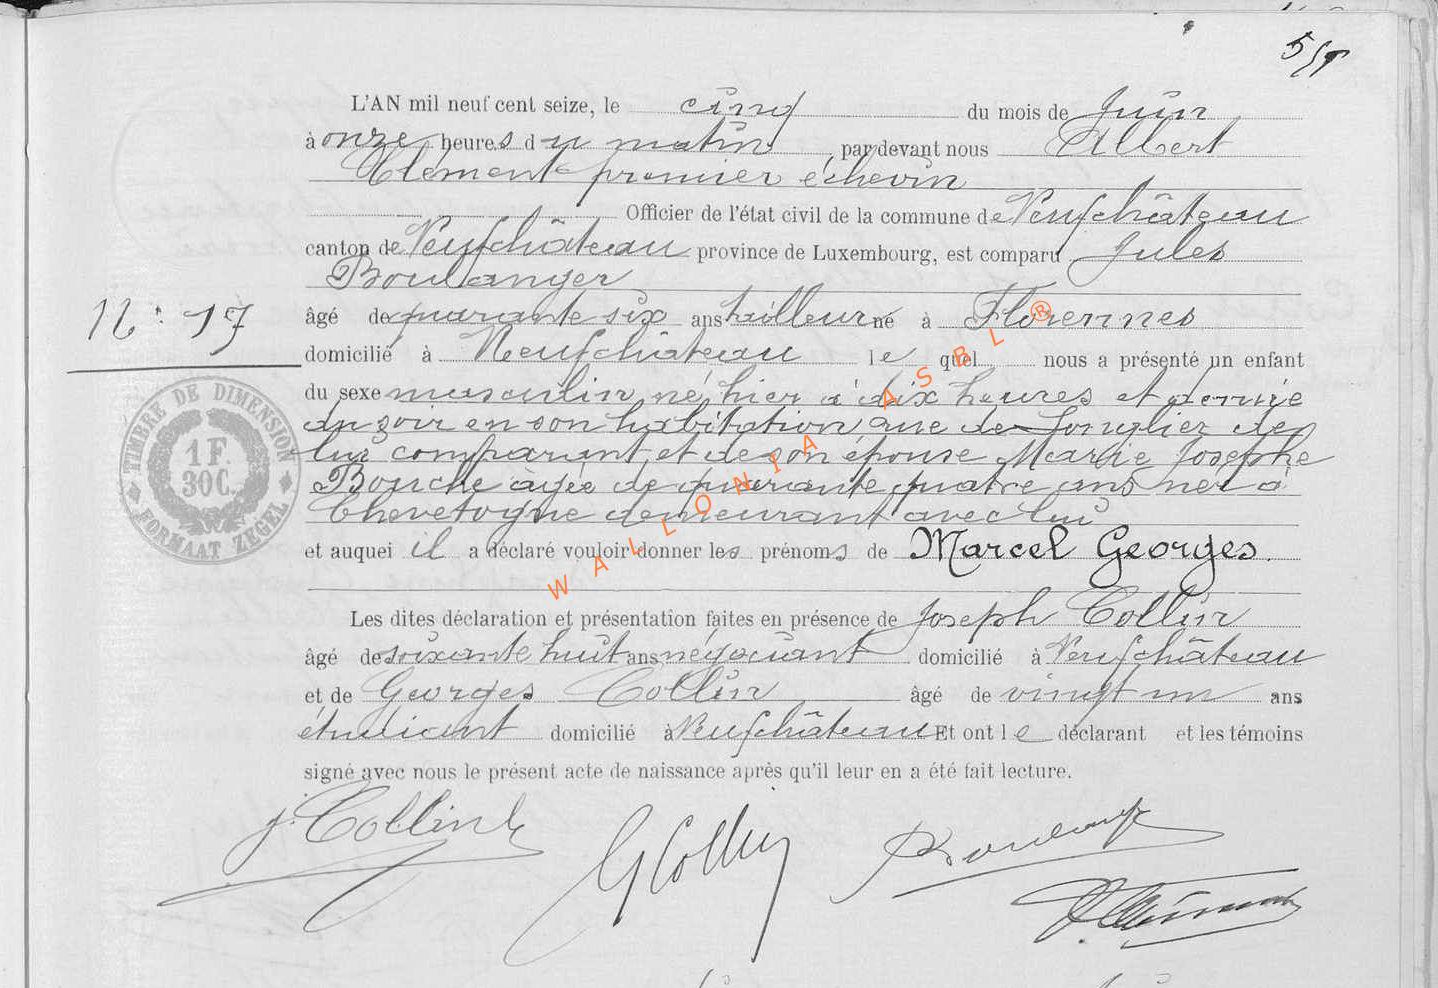 L'AN mil neuf cent seize, le cinq du mois de Juin
à onze heures du matin, par devant nous Albert
Clément premier échevin
Officier de l'état civil de la commune de Neufchâteau
canton de Neufchâteau province de Luxembourg, est comparu Jules
Boulanger
N° 17
âgé de quarante six ans tailleur né à Florennes
domicilié à Neufchâteau lequel nous a présenté un enfant
du sexe masculin, né hier à dix heures et demie
du soir en son habitation, rue de Longlier de
lui comparant et de son épouse Marie Josephe
Bouche âgée de quarante quatre ans née à
Chevetogne demeurant avec lui
et auquel il a déclaré vouloir donner les prénoms de Marcel Georges.
Les dites déclaration et présentation faites en présence de Joseph Collin
âgé de soixante huit ans négociant domicilié à Neufchâteau
et de Georges Collin âgé de vingt un ans
étudiant domicilié à Neufchâteau Et ont le déclarant et les témoins
signé avec nous le présent acte de naissance après qu'il leur en a été fait lecture.
J. Collin G Collin Boulanger
TIMBRE DE DIMENSION
1 F.
30 C.
FORMAAT ZEGEL
WALLONIA ASBL ®